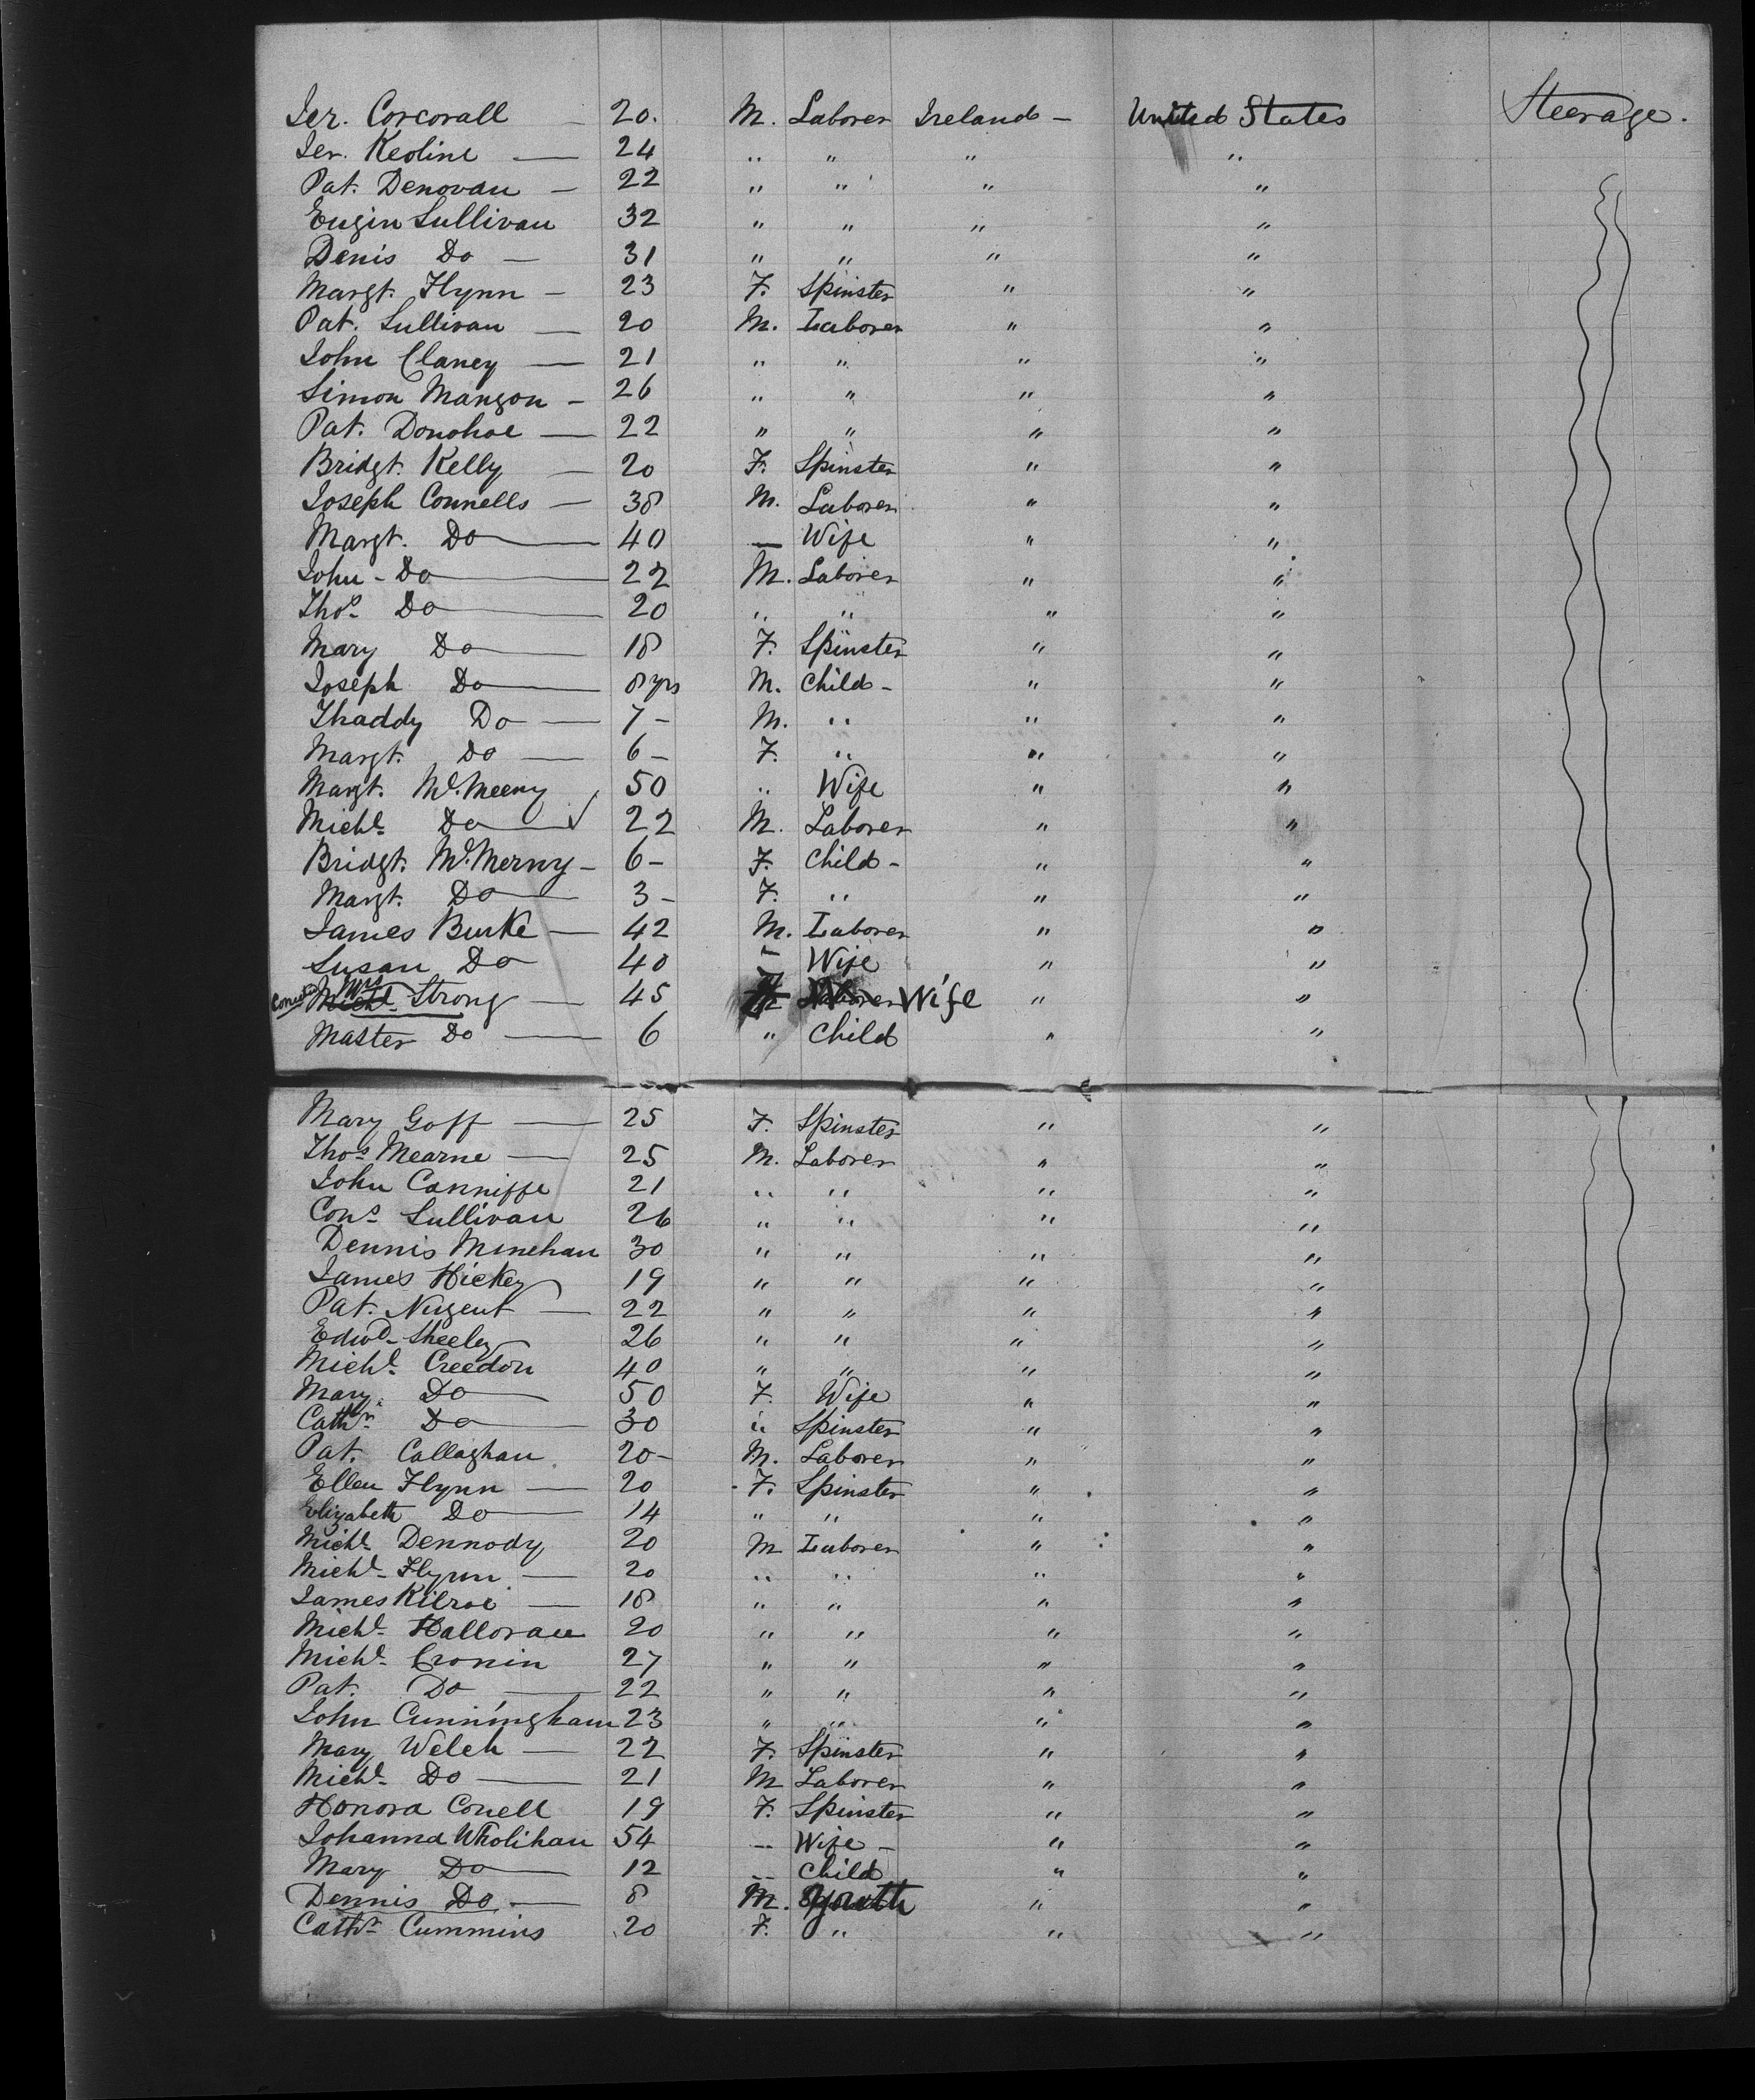 Jer. Corcorall — 20. M. Laborer Ireland — United States Steerage.
Jer. Keoline — 24 " " " "
Pat. Denovan — 22 " " " "
Eugin Sullivan 32 " " " "
Denis Do — 31 " " " "
Margt. Flynn — 23 F. Spinster " "
Pat. Sullivan — 20 M. Laborer " "
John Claney — 21 " " " "
Simon Mangon — 26 " " " "
Pat. Donohoe — 22 " " " "
Bridgt. Kelly — 20 F. Spinster " "
Joseph Connells — 38 M. Laborer " "
Margt. Do — 40 — Wife " "
John - Do — 22 M. Laborer " "
Thos. Do — 20 " " " "
Mary Do — 18 F. Spinster " "
Joseph Do — 8 yrs M. Child - " "
Thaddy Do — 7 - M. " " "
Margt. Do — 6 - F. " " "
Margt. Mc.Meeny 50 " Wife " "
Michl. Do — ✓ 22 M. Laborer " "
Bridgt. Mc.Merny - 6 - F. Child - " "
Margt. Do — 3 - F. " " "
James Burke — 42 M. Laborer " "
Susan Do 40 - Wife " "
Mrs Strong — 45 Wife " "
Master Do — 6 " Child " "
Mary Goff — 25 F. Spinster " "
Thos. Mearne — 25 M. Laborer " "
John Canniffe 21 " " " "
Cons. Sullivan 26 " " " "
Dennis Minehan 30 " " " "
James Hickey 19 " " " "
Pat. Nugent — 22 " " " "
Edwd. Sheeley 26 " " " "
Michl. Creedon 40 " " " "
Mary Do — 50 F. Wife " "
Cathn. Do — 30 " Spinster " "
Pat. Callaghan 20 - M. Laborer " "
Ellen Flynn — 20 F. Spinster " "
Elizabeth Do — 14 " " " "
Michl. Dennody 20 M Laborer " "
Michl. Flynn — 20 " " " "
James Kilroe — 18 " " " "
Michl. Halloran 20 " " " "
Michl. Cronin 27 " " " "
Pat. Do — 22 " " " "
John Cunningham 23 " " " "
Mary Welch — 22 F. Spinster " "
Michl. Do — 21 M Laborer " "
Honora Conell 19 F. Spinster " "
Johanna Wholihan 54 -- Wife - " "
Mary Do — 12 -- Child " "
Dennis Do — 8 M. youth " "
Cathn. Cummins 20 F. " " "